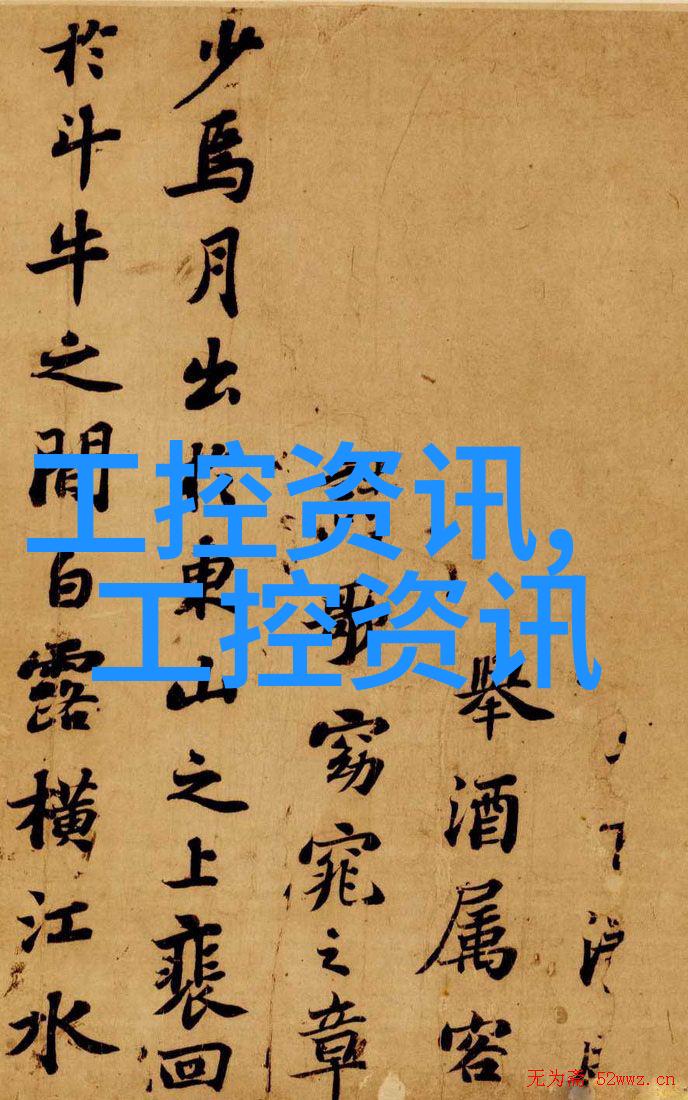 舉酒属客
窈窕之章
少焉月出於東山之上裵回
於斗牛之間白露橫江水
工控资讯,
工控资讯
无为斋 52wwz.cn